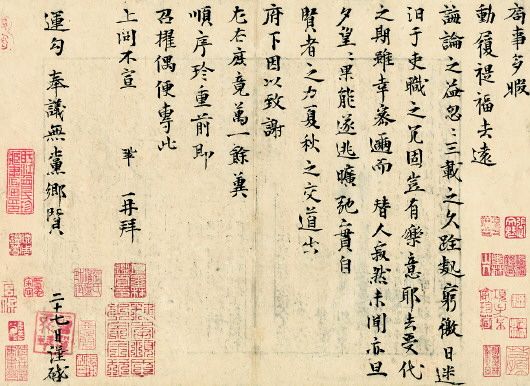 局事多暇
動履禔福去遠
誨論之益忽〻三載之久跧處窮徼日迷
汨于吏職之冗固豈有樂意耶去受代
之期雖幸密邇而替人寂然未聞亦旦
夕望〻果能遂逃曠弛實自
賢者之力夏秋之交道出
府下因以致謝
左右庶竟萬一餘冀
順序珍重前即
召擢偶便專此
上問不宣 鞏 再拜
運勾 奉議無黨鄉賢
二十七日謹啟